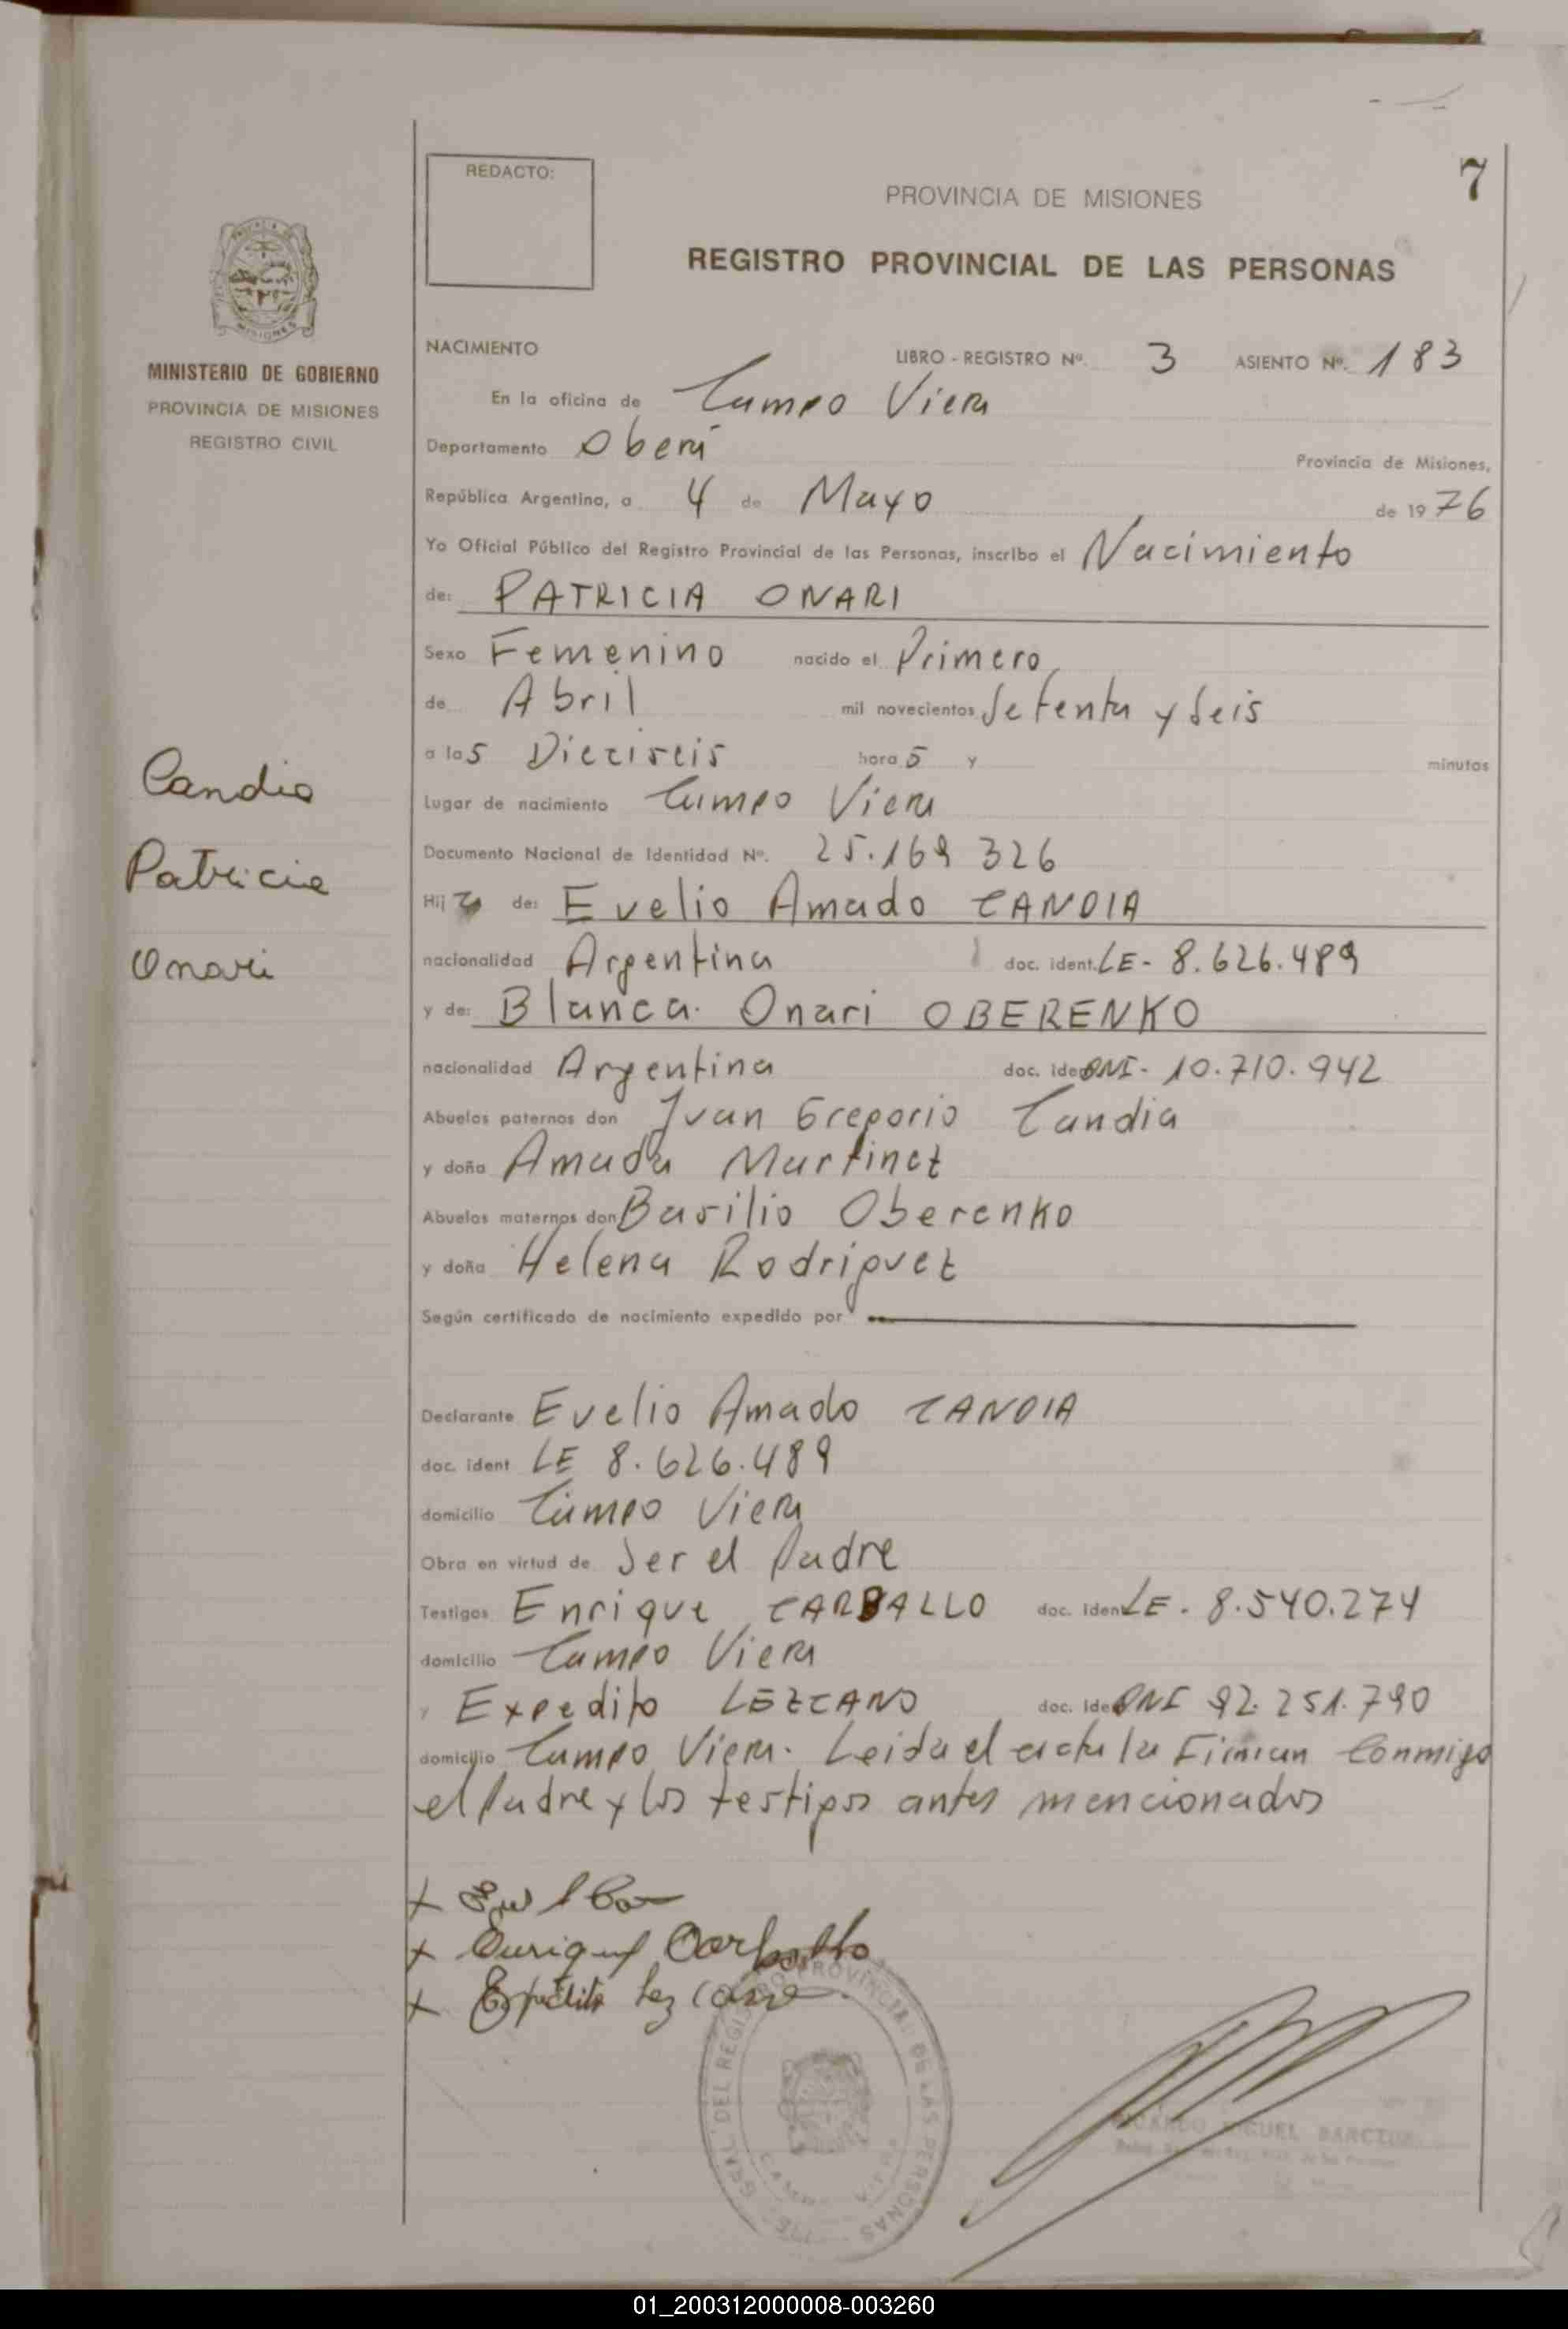 7
REDACTO:
PROVINCIA DE MISIONES
REGISTRO PROVINCIAL DE LAS PERSONAS
MISIONES
MINISTERIO DE GOBIERNO
PROVINCIA DE MISIONES
REGISTRO CIVIL
NACIMIENTO LIBRO - REGISTRO Nº. 3 ASIENTO Nº. 183
En la oficina de Campo Viera
Departamento Oberá Provincia de Misiones,
República Argentina, a 4 de Mayo de 1976
Yo Oficial Público del Registro Provincial de las Personas, inscribo el Nacimiento
de: PATRICIA ONARI
Sexo Femenino nacido el Primero
de Abril mil novecientos Setenta y Seis
a las Dieciseis horas y minutos
Lugar de nacimiento Campo Viera
Documento Nacional de Identidad Nº. 25.169 326
Hija de: Evelio Amado CANDIA
nacionalidad Argentina doc. ident. LE- 8.626.489
y de: Blanca Onari OBERENKO
nacionalidad Argentina doc. ident DNI- 10.710.942
Abuelos paternos don Juan Gregorio Candia
y doña Amada Martinez
Abuelos maternos don Basilio Oberenko
y doña Helena Rodriguez
Según certificado de nacimiento expedido por
Declarante Evelio Amado CANDIA
doc. ident LE 8.626.489
domicilio Campo Viera
Obra en virtud de Ser el Padre
Testigos Enrique CARBALLO doc. ident LE. 8.540.274
domicilio Campo Viera
y Expedito LEZCANO doc. ident DNI 92.251.790
domicilio Campo Viera. Leida el acta la Firman Conmigo
el Padre y los testigos antes mencionados
Candia
Patricia
Onari
Enrique Carballo
Expedito Lezcano
GRAL. DEL REGISTRO PROVINCIAL DE LAS PERSONAS
CAMPO VIERA
MIGUEL
01_200312000008-003260